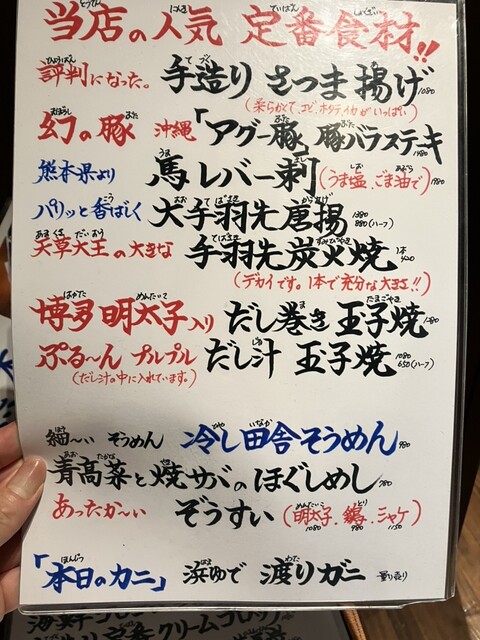 当店の人気 定番食材!!
評判になった。 手造り さつま揚げ 1080
(柔らかくて、エビ、ホタテ、イカがいっぱい)
幻の豚 沖縄 「アグー豚」豚バラステーキ 1980
熊本県より 馬レバー刺 (うま塩、ごま油で)
パリッと香ばしく 大手羽先唐揚 1380 880(ハーフ)
天草大王の大きな 手羽先炭火焼 1本
(デカイです。1本で充分な大きさ!!)
博多明太子入り だし巻き玉子焼
ぷる〜ん プルプル だし汁 玉子焼 1080 650(ハーフ)
(だし汁の中に入れています。)
細〜い そうめん 冷し田舎そうめん 980
青高菜と焼サバのほぐしめし 780
あったか〜い ぞうすい (明太子、鶏、シャケ)
1080 980 1150
「本日のカニ」 浜ゆで 渡りガニ 量り売り
クリームコロッケ